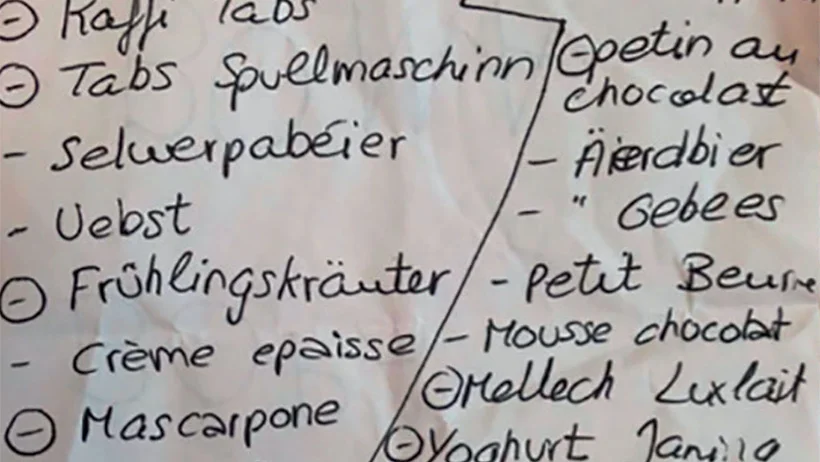 Kaffi Tabs
Tabs Spullmaschinn
- Selwerpabéier
- Uebst
Frühlingskräuter
- Crème epaisse
Mascarpone
petin au
chocolat
- Äerdbier
- " Gebees
- Petit Beurre
- Mousse chocolat
Mellech Luxlait
Yoghurt